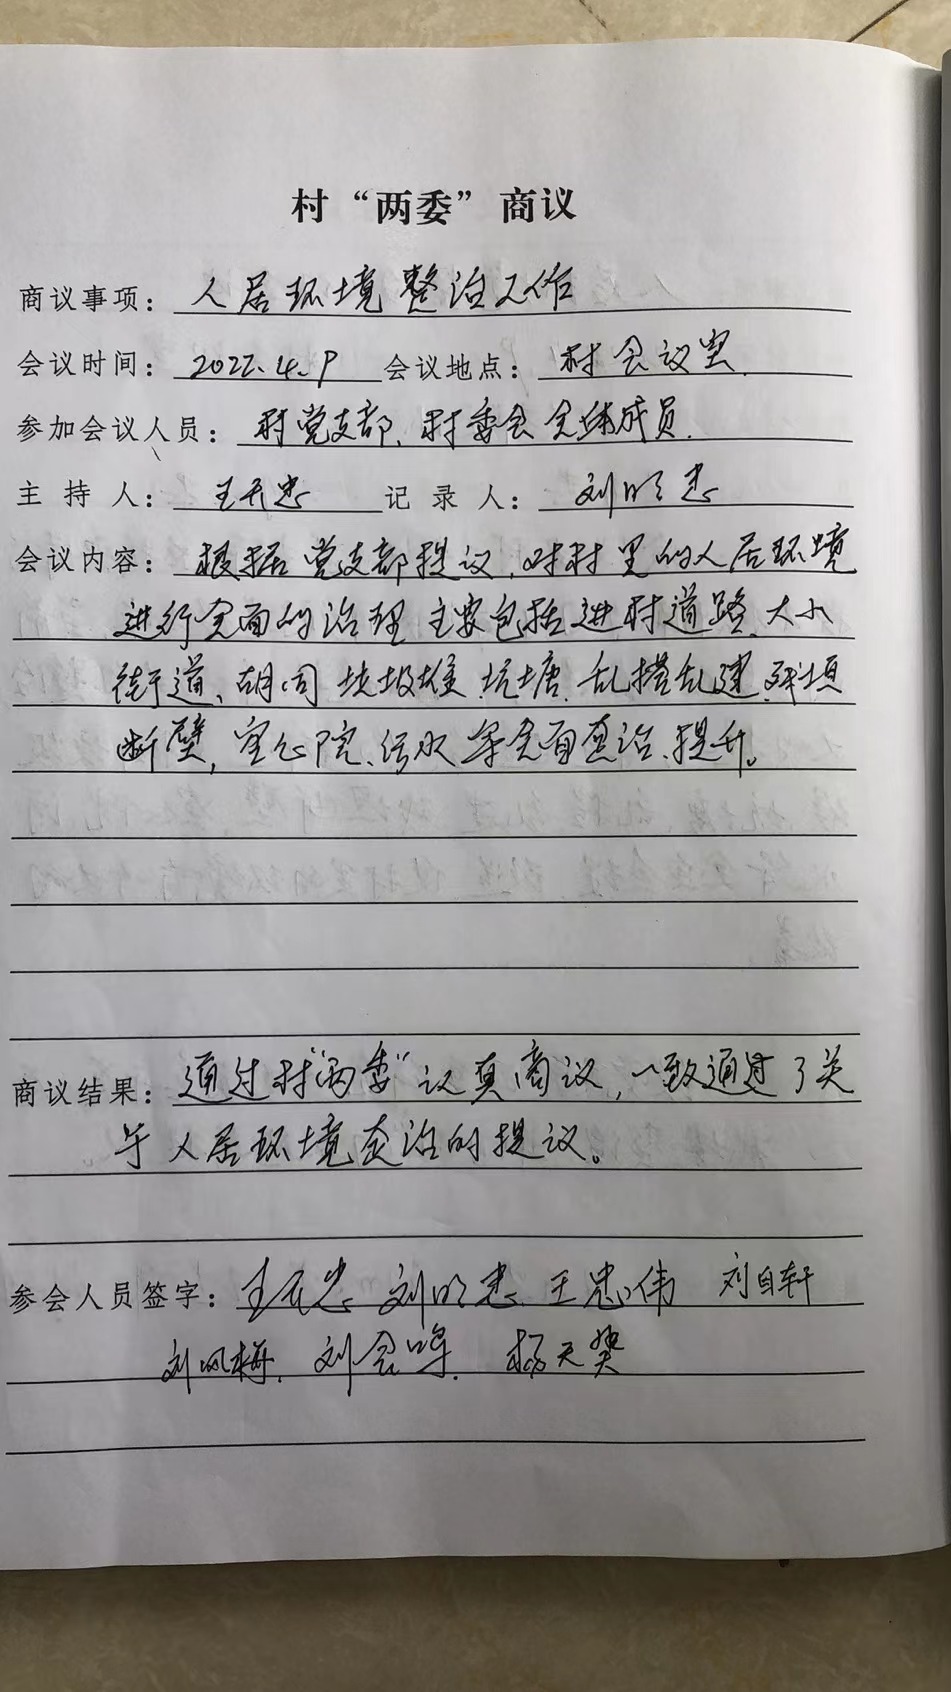 村“两委”商议
商议事项：人居环境整治工作
会议时间：2022.4.9 会议地点：村会议室.
参加会议人员：村党支部、村委会全体成员.
主持人：王开忠 记录人：刘明忠
会议内容：根据党支部提议,对村里的人居环境
进行全面的治理 主要包括进村道路、大小
街道、胡同 垃圾堆、坑塘、乱搭乱建、残垣
断壁,空心院、污水等全面查治、提升。
商议结果：通过村“两委”议真商议,一致通过了关
于人居环境查治的提议。
参会人员签字：王开忠 刘明忠 王忠伟 刘自轩
刘风梅. 刘会 . 杨天